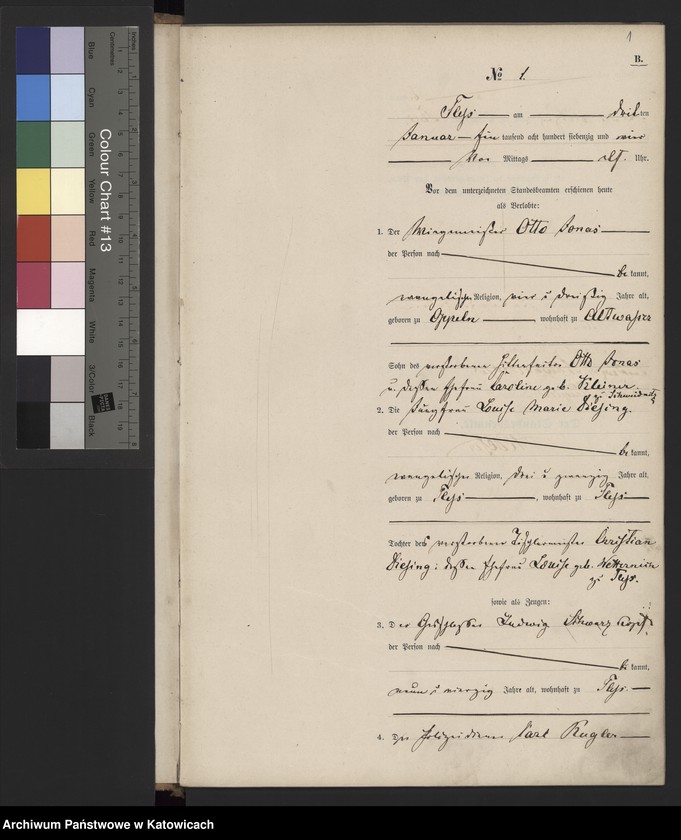 1
B.
№ 1.
Pless am dritten
Januar Ein tausend acht hundert siebenzig und vier
Vor Mittags elf Uhr.
Vor dem unterzeichneten Standesbeamten erschienen heute
als Verlobte:
1. Der Otto Jonas
der Person nach
bekannt,
evangelischer Religion, vier u dreißig Jahre alt,
geboren zu Oppeln, wohnhaft zu Altwasser
Sohn des verstorbenen Otto Jonas
u. dessen Ehefrau Caroline geb. Kleiner
zu Schweidnitz
2. Die Jungfrau Louise Marie Diesing.
der Person nach
bekannt,
evangelischer Religion, drei u zwanzig Jahre alt,
geboren zu Pless, wohnhaft zu Pless
Tochter des verstorbenen Tischlermeister Christian
Diesing u. dessen Ehefrau Louise geb.
zu Pless.
sowie als Zeugen:
3. Der Ludwig Schwarzkopf
der Person nach
bekannt,
neun u vierzig Jahre alt, wohnhaft zu Pless
4. Der Polizeidiener Carl Kugler
Colour Chart #13
Blue
Cyan
Green
Yellow
Red
Magenta
White
3/Color
Black
Centimetres
Inches
Archiwum Państwowe w Katowicach